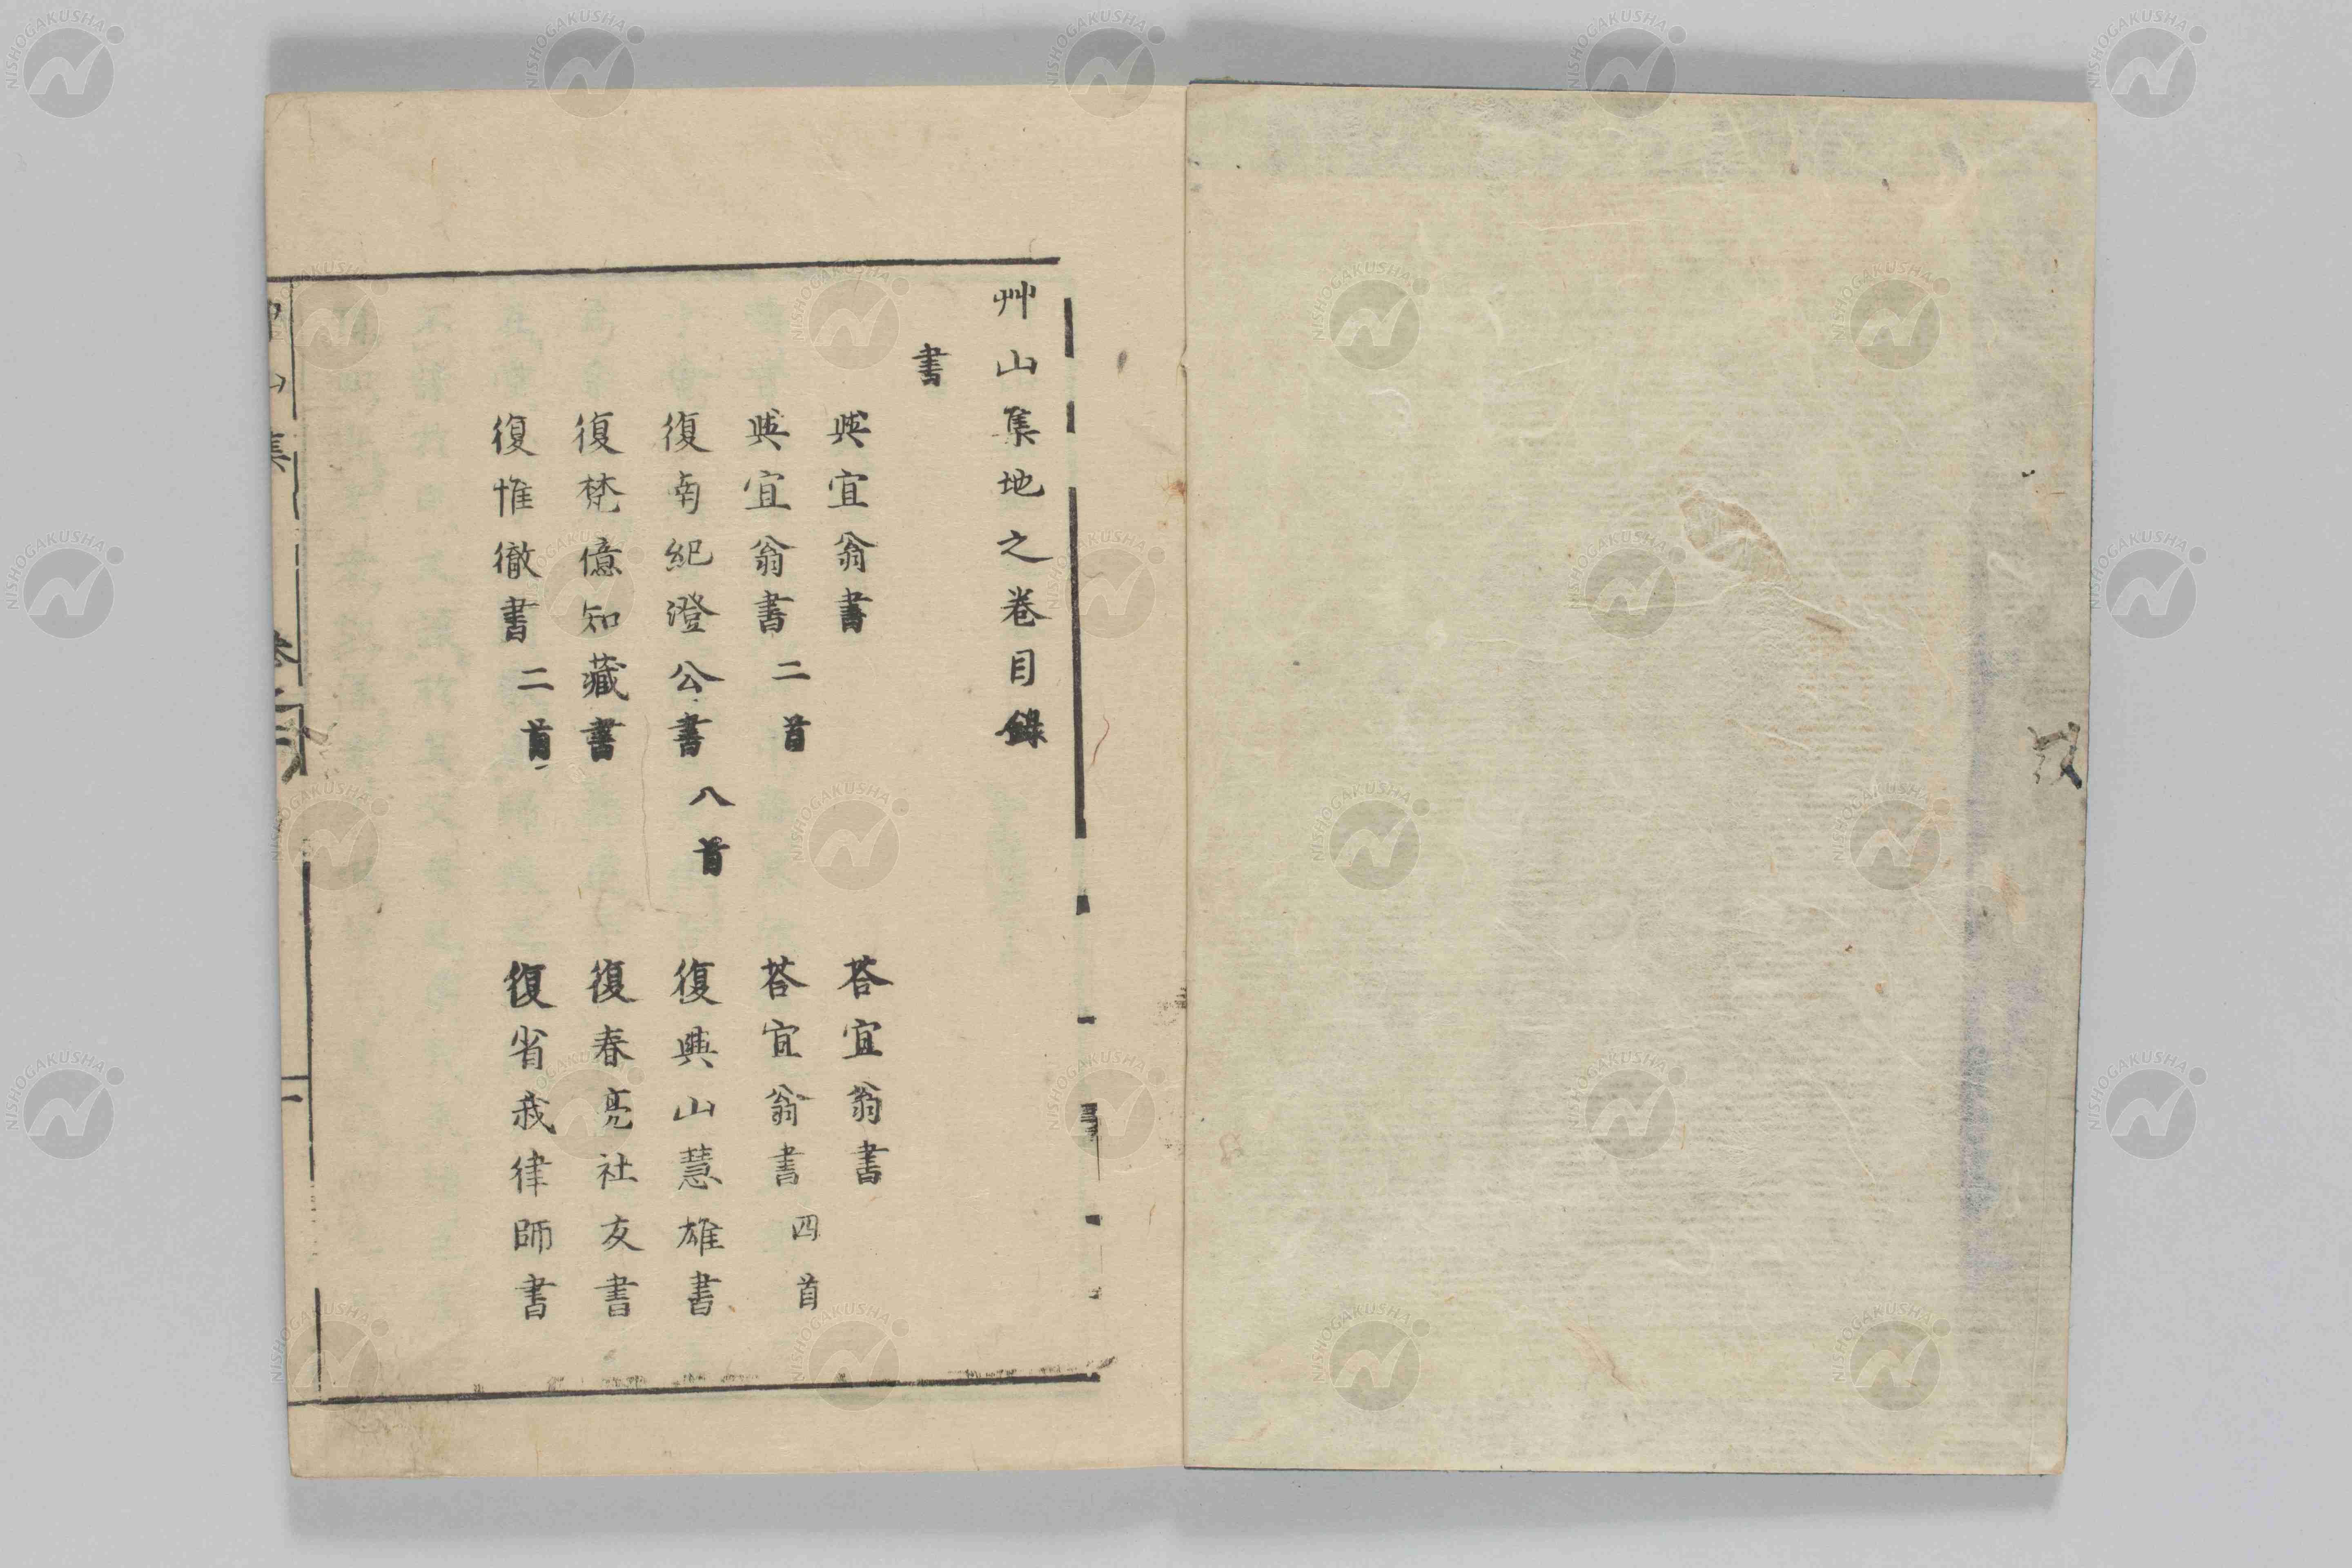 艸山集地之卷目錄
書
與宜翁書 荅宜翁書
與宜翁書二首 荅宜翁書四首
復南紀澄公書八首 復興山慧雄書
復梵億知藏書 復春亮社友書
復惟徹書二首 復省我律師書
NISHOGAKUSHA